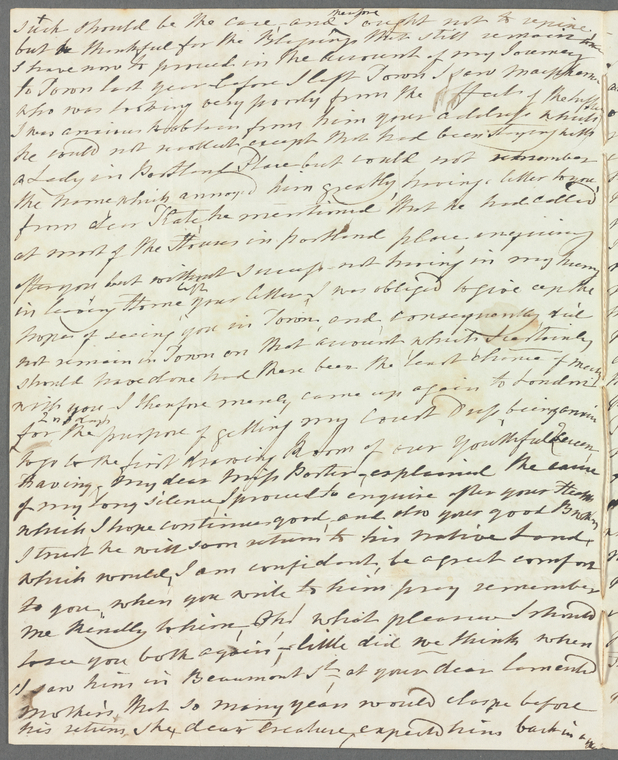 such should be the case, and therefore I ought not to repine,
but be thankful for the Blessings that still remain
I have now to proceed in the account of my Journey
to Town last year before I left Town I saw
who was looking very poorly from the effects of the
I was anxious to obtain from him your address which
he could not recollect except that had been staying with
a Lady in Portland Place but could not remember
the name which annoyed him greatly having a letter to you
from dear Kate he mentioned that he had called
at most of the Houses in portland place enquiring
after you but without success not having in my hurry
in leaving Home left your letter I was obliged to give up the
hopes of seeing you in Town and consequently did
not remain in Town on that account which I certainly
should have done had there been the least chance of meeting
with you I therefore merely came up again to London
for the purpose of getting my Court Dress being anxious
to go to the first drawing Room of our Youthful Queen
Having, my dear Miss Porter, explained the cause
of my long silence I proceed to enquire after your Health
which I hope continues good and also your good Brother,
I trust he will soon return to his native Land,
which would, I am confident, be a great comfort
to you, when you write to him pray remember
me kindly to him Oh! what pleasure I should
to see you both again! little did we think when
I saw him in Beaumont St. at your dear lamented
mother's, that so many years would elapse before
his return, She, dear Creature, expected him back in a